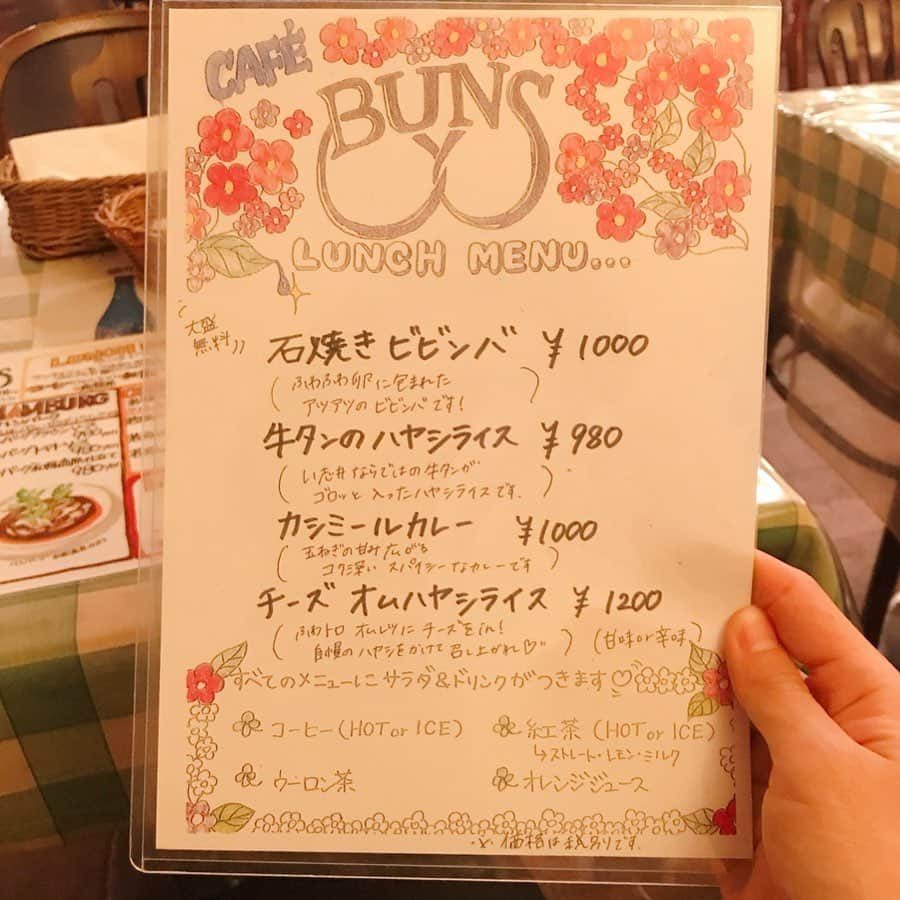 CAFÉ
BUNS
LUNCH MENU...
大盛
無料
石焼き ビビンバ ¥1000
(ふわふわ卵に包まれた
アツアツのビビンバです!)
牛タンのハヤシライス ¥980
(いたがきならではの牛タンが
ゴロッと入ったハヤシライスです。)
カシミールカレー ¥1000
(玉ねぎの甘み広がる
コク深い スパイシーなカレーです)
チーズ オムハヤシライス ¥1200
(ふわトロ オムレツに チーズをin!
自慢のハヤシをかけて召し上がれ♡) (甘味or辛味)
すべてのメニューにサラダ&ドリンクがつきます♡
コーヒー(HOT or ICE)
紅茶 (HOT or ICE)
↳ストレート・レモン・ミルク
ウーロン茶
オレンジジュース
※価格は税別りです。
HAMBURG